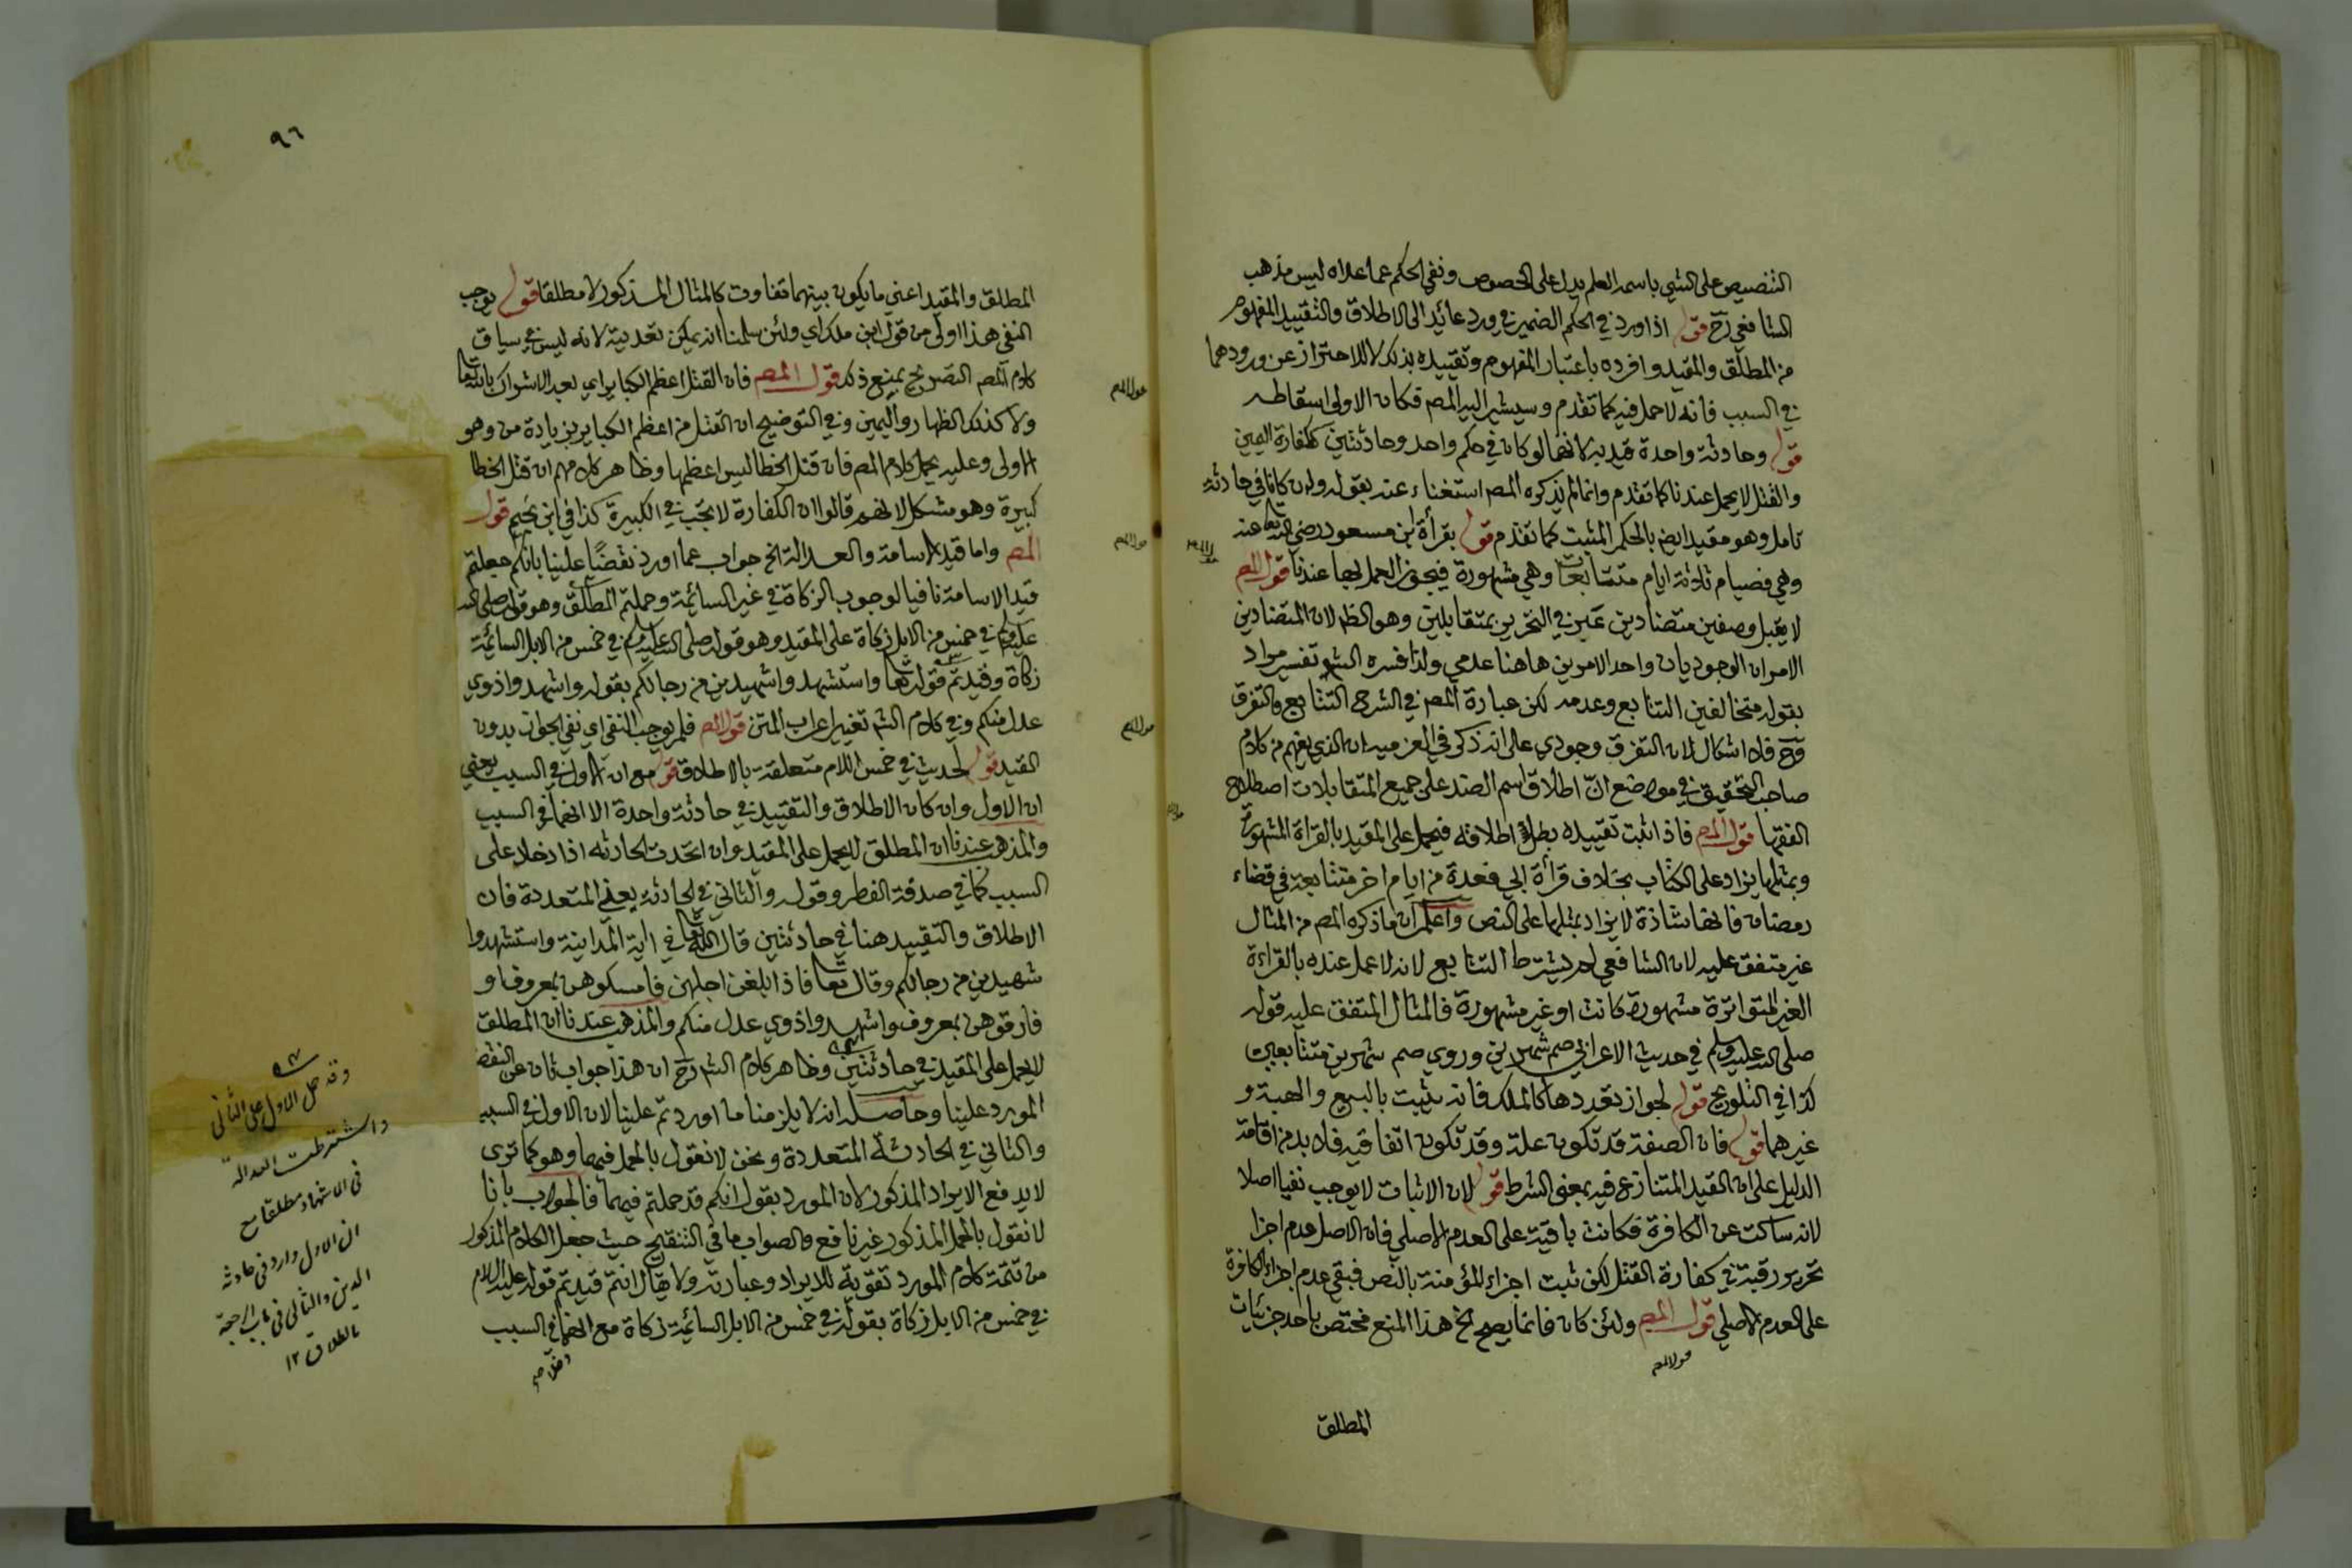 التنصيص على الشيء باسمه العلم يدل على الخصوص ونفي الحكم عما عداه ليس مذهب
الشافعي رح قوله اذا ورد في الحكم الضمير في ورد عائد الى الاطلاق والتقييد المفهوم
من المطلق والمقيد وافرده باعتبار المفهوم وتقييده بذلك للاحتراز عن ورودهما
في السبب فانه لا حمل فيه كما تقدم وسيشير اليه المص فكان الاولى اسقاطه
قوله وحادثة واحدة قيد به لانهما لو كان في حكم واحد وحادثتين ككفارة اليمين
والقتل لا يحمل عندنا كما تقدم وانما لم يذكره المص استغناء عنه بقوله وان كانا في حادثة
تامل وهو مقيد ايض بالحكم المثبت كما تقدم قوله بقرأة ابن مسعود رضي الله تعا عنه
وهي فصيام ثلاثة ايام متتابعات وهي مشهورة فيجوز العمل بها عندنا قول المص
لا يقبل وصفين متضادين عبر في التحرير بمتقابلين وهو الظ لان المتضادين
الامران الوجوديان واحد الامرين هاهنا عدمي ولذا فسره الش تفسير مراد
بقوله متخالفين التتابع وعدمه لكن عبارة المص في الشرح التتابع والتفرق
وح فلا اشكال لان التفرق وجودي على انه ذكر في العزمية ان الذي يفهم من كلام
صاحب التحقيق في مواضع ان اطلاق اسم الضد على جميع المتقابلات اصطلاح
الفقها قول المص فاذا ثبت تقييده بطل اطلاقه فيحمل على المقيد بالقراة المشهورة
وبمثلها يزاد على الكتاب بخلاف قرأة ابي فعدة من ايام اخر متتابعة في قضاء
رمضان فانها شاذة لا يزاد بمثلها على النص واعلم ان ما ذكره المص من المثال
غير متفق عليه لان الشافعي لم يشترط التتابع لانه لا عمل عنده بالقراءة
الغير المتواترة مشهورة كانت او غير مشهورة فالمثال المتفق عليه قوله
صلى الله عليه وسلم في حديث الاعرابي صم شهرين وروي صم شهرين متتابعين
كذا في التلويح قوله لجواز تعددها كالملك فانه يثبت بالبيع والهبة و
غيرهما قوله فان الصفة قد تكون علة وقد تكون اتفاقية فلا بد من اقامة
الدليل على ان القيد المتنازع فيه بمعنى الشرط قوله لان الاثبات لا يوجب نفيا اصلا
لانه ساكت عن الكافرة فكانت باقية على العدم الاصلي فان الاصل عدم اجزا
تحرير رقبة في كفارة القتل لكن ثبت اجزاء المؤمنة بالنص فبقي عدم اجزاء الكافرة
على العدم الاصلي قول المص ولئن كان فانما يصح الخ هذا المنع مختص باحد جزئيات
قول المص
المطلق
٩٦
المطلق والمقيد اعني ما يكون بينهما تفاوت كالمثال المذكور لا مطلقا قوله يوجب
النفي هذا اولى من قول ابن ملك اي ولئن سلمنا انه يمكن تعديته لانه ليس في سياق
كلام المص التصريح بمنع ذلك قول المص فان القتل اعظم الكبائر اي بعد الاشراك بالله تعا
ولا كذلك الظهار واليمين وفي التوضيح ان القتل من اعظم الكبائر بزيادة من وهو
اولى وعليه يحمل كلام المص فان قتل الخطا ليس اعظمها وظاهر كلامهم ان قتل الخطا
كبيرة وهو مشكل لانهم قالوا ان الكفارة لا تجب في الكبيرة كذا في ابن نجيم قول
المص واما قيد الاسامة والعدالة الخ جواب عما اورد نقضًا علينا بانكم جعلتم
قيد الاسامة نافيا لوجوب الزكاة في غير السائمة وحملتم المطلق وهو قوله صلى الله
عليه وسلم في خمس من الابل زكاة على المقيد وهو قوله صلى الله عليه وسلم في خمس من الابل السائمة
زكاة وقيدتم قوله تعا واستشهدوا شهيدين من رجالكم بقوله واشهدوا ذوي
عدل منكم وفي كلام الش تغيير اعراب المتن قول المص فلم يوجب النفي اي نفي الجواز بدون
القيد قوله لحديث في خمس اللام متعلقة بالاطلاق قوله مع ان الاول في السبب يعني
ان الاول وان كان الاطلاق والتقييد في حادثة واحدة الا انهما في السبب
والمذهب عندنا ان المطلق لا يحمل على المقيد وان اتحدت الحادثه اذا دخلا على
السبب كما في صدقة الفطر وقوله والثاني في الحادثة يعني المتعددة فان
الاطلاق والتقييد هنا في حادثتين قال الله تعا في اية المداينة واستشهدوا
شهيدين من رجالكم وقال تعا فاذا بلغن اجلهن فامسكوهن بمعروف او
فارقوهن بمعروف واشهدوا ذوي عدل منكم والمذهب عندنا ان المطلق
لا يحمل على المقيد في حادثتين وظاهر كلام الش رح ان هذا جواب ثان عن النقض
المورد علينا وحاصله انه لا يلزمنا ما اوردتم علينا لان الاول في السبب
والثاني في الحادثة المتعددة ونحن لا نقول بالحمل فيهما وهو كما ترى
لا يدفع الايراد المذكور لان المورد يقول انكم قد حملتم فيهما فالجواب بانا
لا نقول بالحمل المذكور غير نافع والصواب ما في التنقيح حيث جعل الكلام المذكور
من تتمة كلام المورد تقوية للايراد وعبارته ولا يقال انتم قيدتم قوله عليه السلام
في خمس من الابل زكاة بقوله في خمس من الابل السائمة زكاة مع انهما في السبب
وقد حمل الاول على الثاني
واشترطت العدالة
في الاشهاد مطلقا مع
ان الاول وارد في حادثة
الدين والثاني في باب الرجعة
بالطلاق ١٢